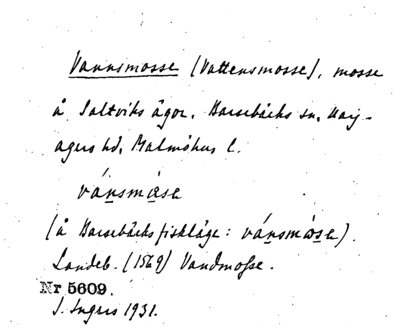 Vannsmosse (Vattensmosse), mosse
å Saltviks ägor, Barsebäcks sn, Harj-
agers hd, Malmöhus l.
vánsmòsa
(å Barsebäcks fiskläge: vánsmòsa).
Landeb. (1569) Vandmosse.
Nr 5609.
J. Ingers 1931.